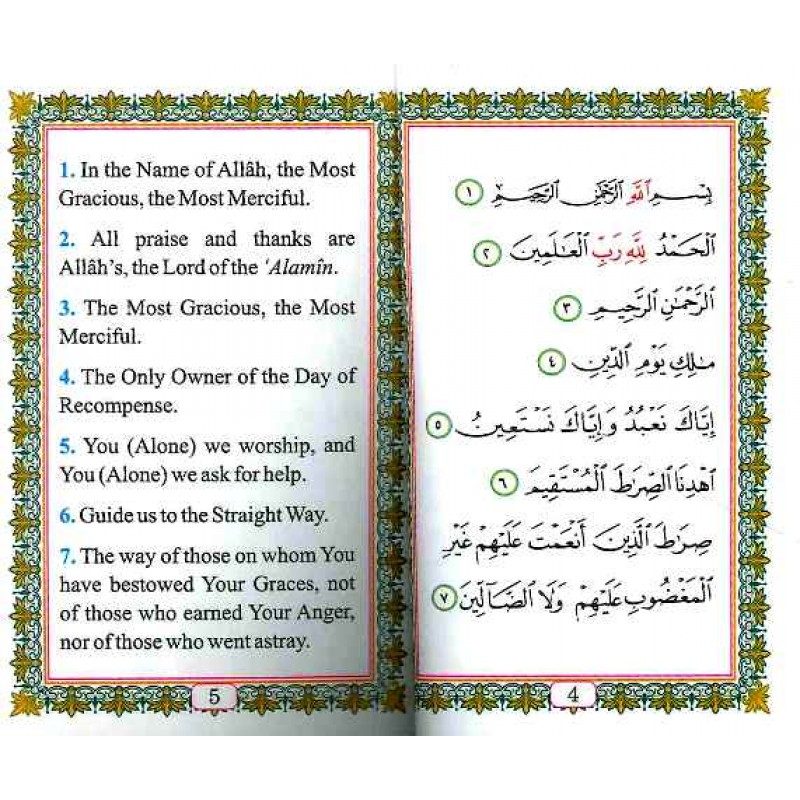 بِسْمِ اللَّهِ الرَّحْمَٰنِ الرَّحِيمِ ١
الْحَمْدُ لِلَّهِ رَبِّ الْعَالَمِينَ ٢
الرَّحْمَٰنِ الرَّحِيمِ ٣
مَالِكِ يَوْمِ الدِّينِ ٤
إِيَّاكَ نَعْبُدُ وَإِيَّاكَ نَسْتَعِينُ ٥
اهْدِنَا الصِّرَاطَ الْمُسْتَقِيمَ ٦
صِرَاطَ الَّذِينَ أَنْعَمْتَ عَلَيْهِمْ غَيْرِ
الْمَغْضُوبِ عَلَيْهِمْ وَلَا الضَّالِّينَ ٧
4
1. In the Name of Allâh, the Most
Gracious, the Most Merciful.
2. All praise and thanks are
Allâh's, the Lord of the 'Alamîn.
3. The Most Gracious, the Most
Merciful.
4. The Only Owner of the Day of
Recompense.
5. You (Alone) we worship, and
You (Alone) we ask for help.
6. Guide us to the Straight Way.
7. The way of those on whom You
have bestowed Your Graces, not
of those who earned Your Anger,
nor of those who went astray.
5